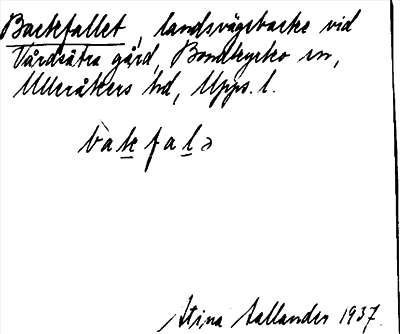 Backefallet, landsvägsbacke vid
Vårdsätra gård, Bondkyrko sn,
Ulleråkers hd, Upps. l.
bakfalə
Stina Aallander 1937.